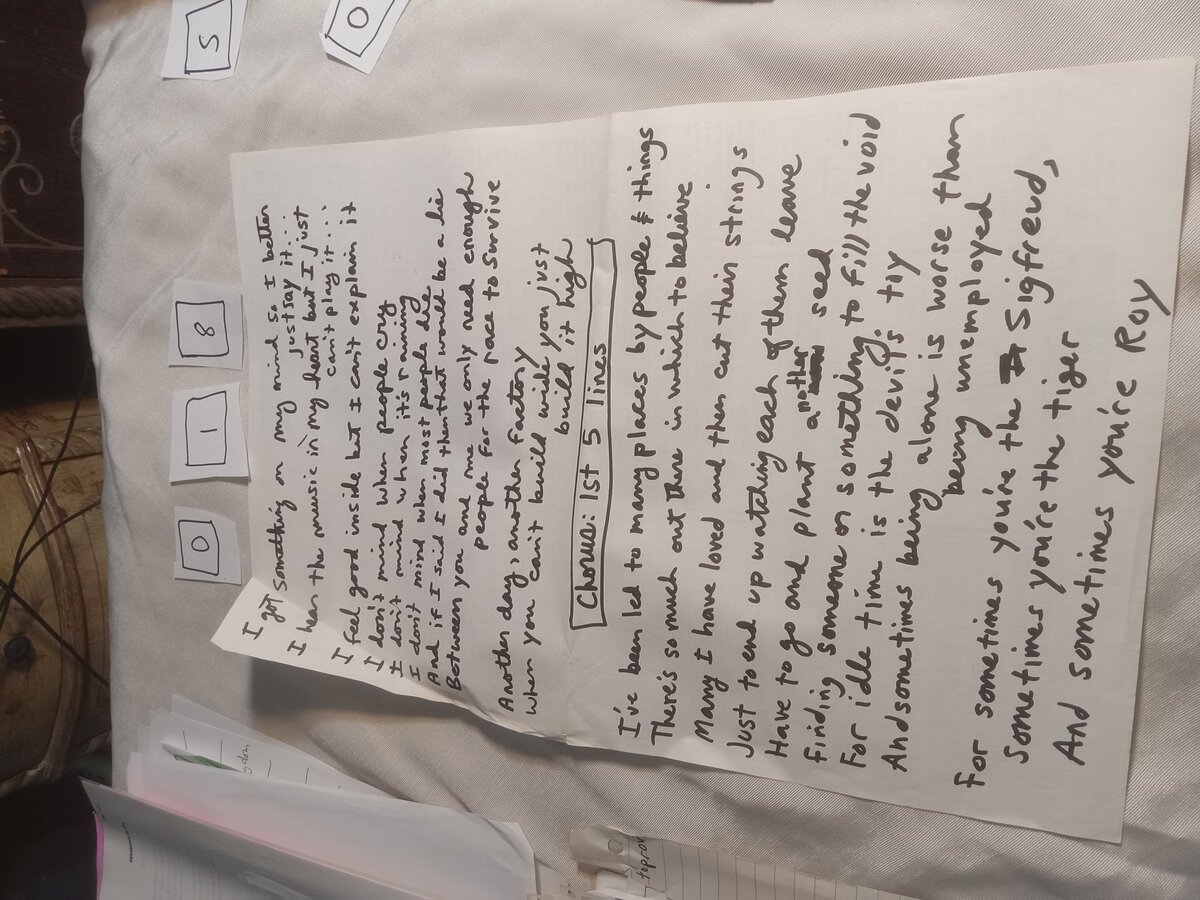 S
O
0
1
8
I got something on my mind so I better
just say it...
I hear the music in my heart but I just
can't play it...
I feel good inside but I can't explain it
I don't mind when people cry
I don't mind when its raining
I don't mind when most people die
And if I said I did then that would be a lie
Between you and me we only need enough
people for the race to survive
Another day, another factory
when you can't build wide you just
build it high
Chorus: 1st 5 lines
I've been led to many places by people & things
There's so much out there in which to believe
Many I have loved and then cut their strings
Just to end up watching each of them leave
Have to go and plant another seed
finding someone or something to fill the void
For idle time is the devil's toy
And sometimes being alone is worse than
being unemployed
For sometimes you're the Sigfreud,
Sometimes you're the tiger
And sometimes you're Roy
gdom